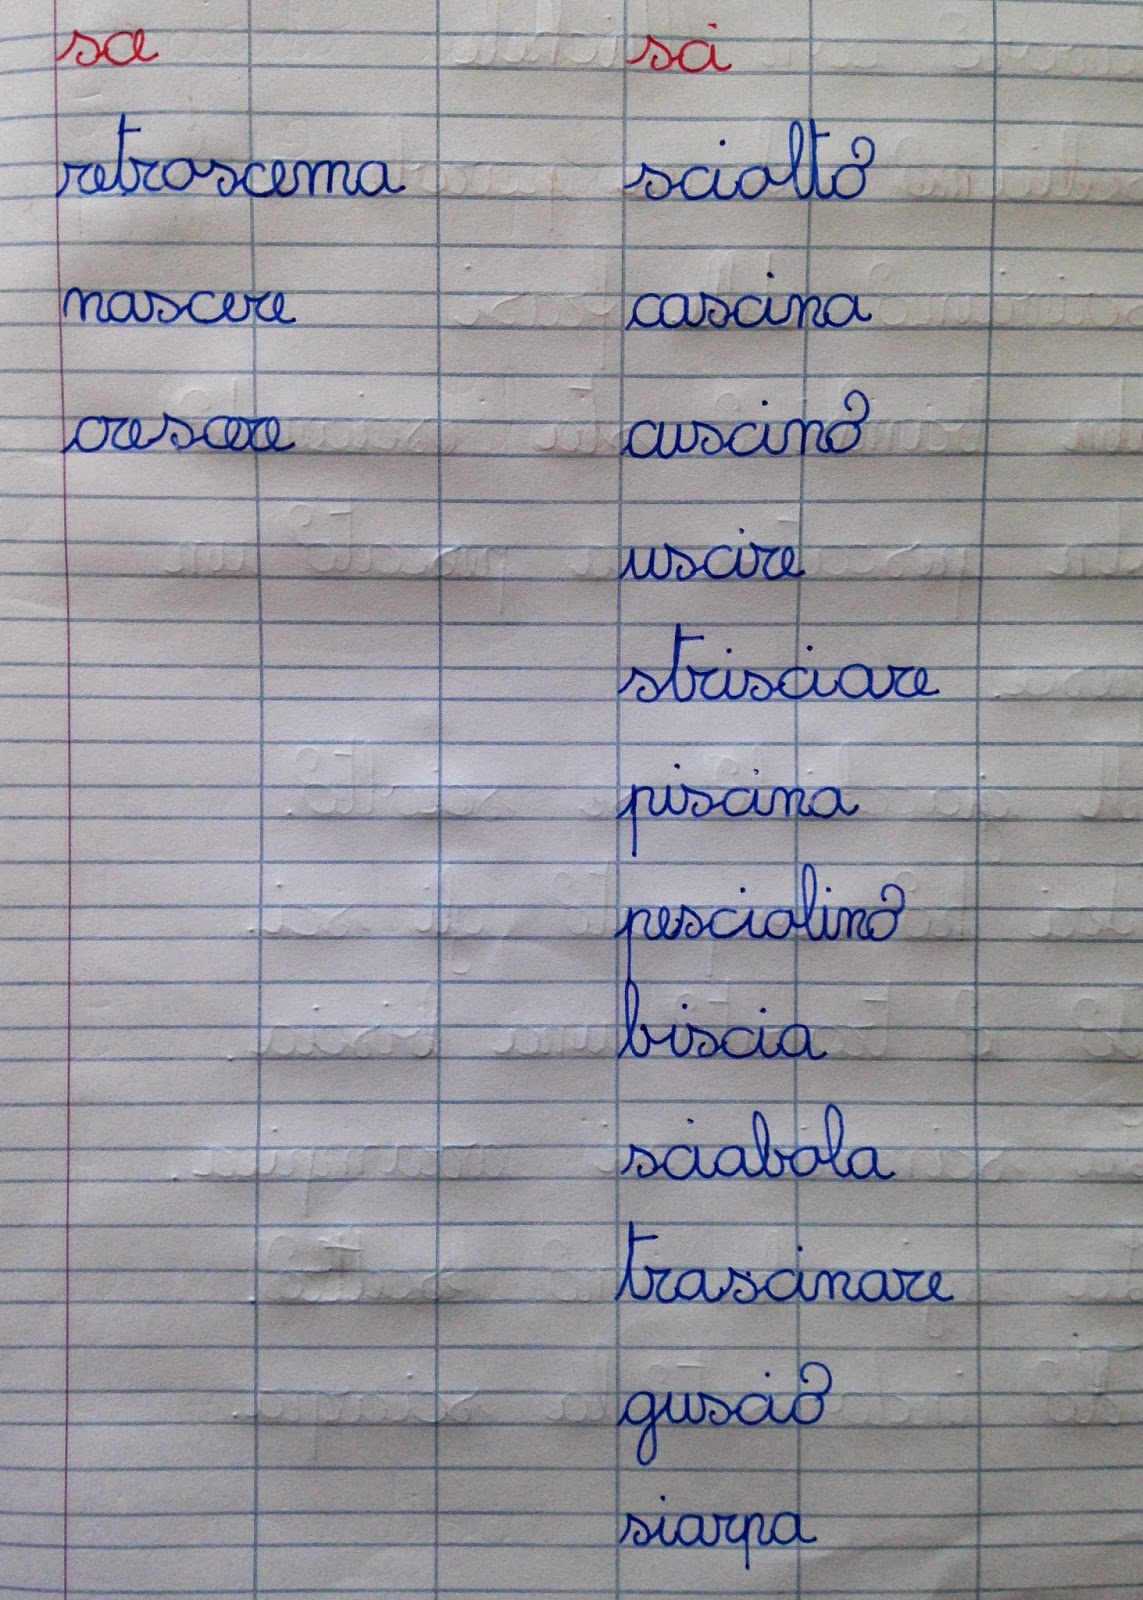 sce sci
retroscena sciolto
nascere cascina
crescere cuscino
uscire
strisciare
piscina
pesciolino
biscia
sciabola
trascinare
guscio
siarpa